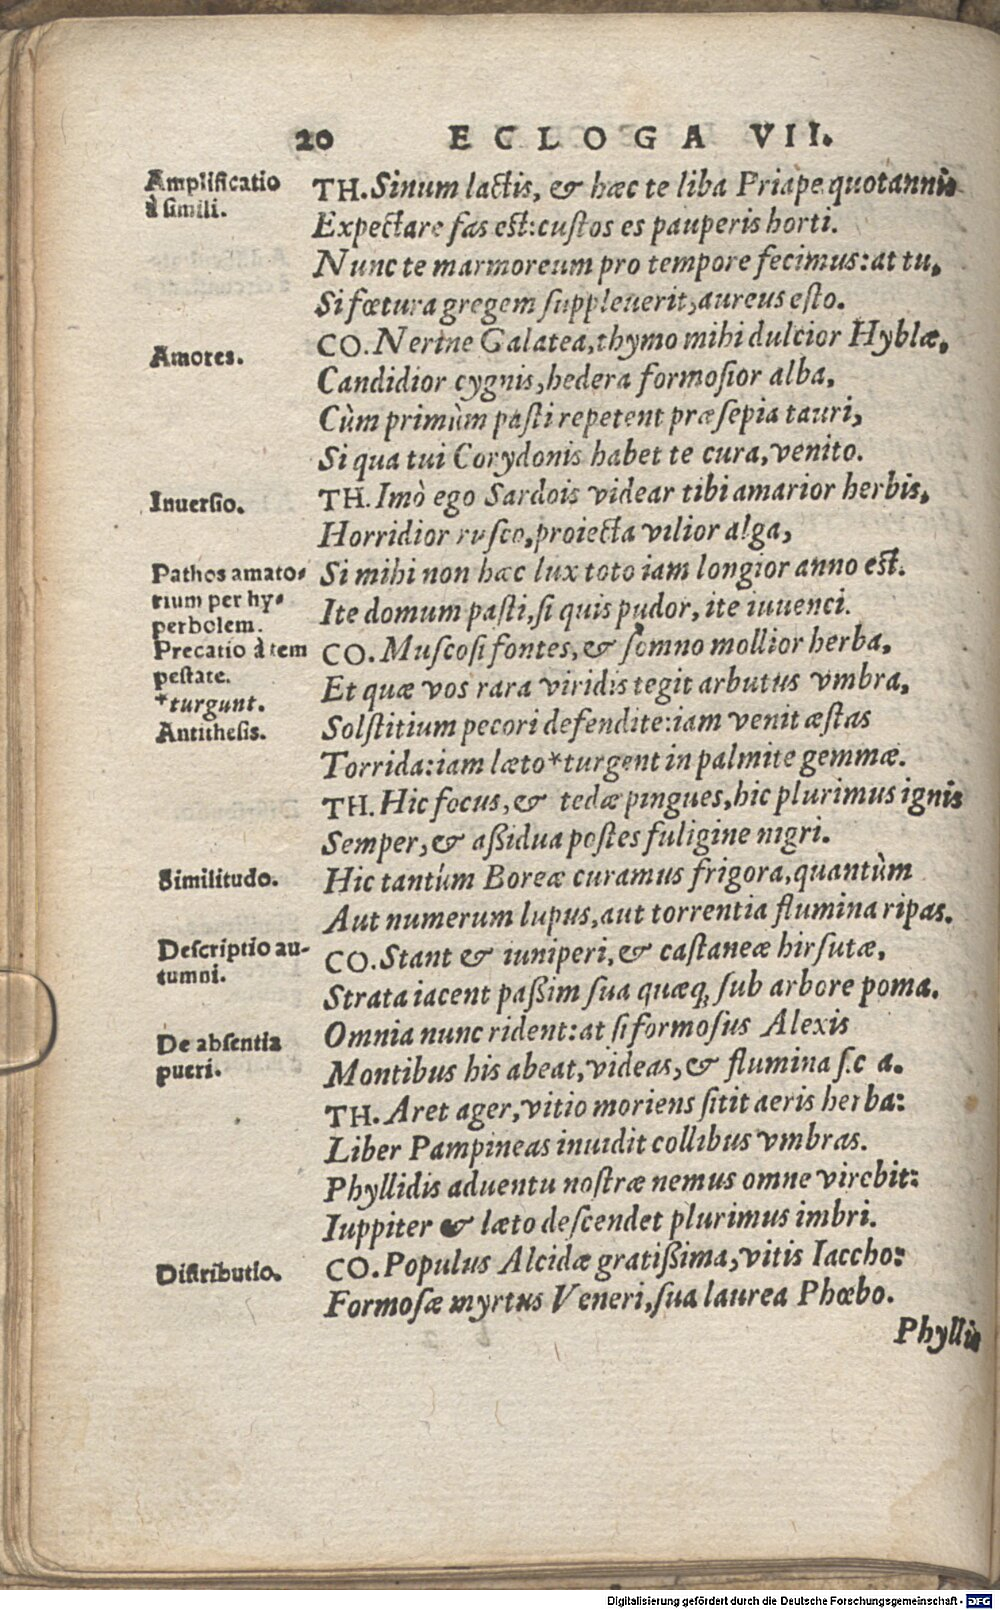 20 ECLOGA VII.
Amplificatio
à simili.
TH. Sinum lactis, & hæc te liba Priape quotannis
Expectare fas est: custos es pauperis horti.
Nunc te marmoreum pro tempore fecimus: at tu,
Si fœtura gregem suppleuerit, aureus esto.
Amores.
CO. Nerine Galatea, thymo mihi dulcior Hyblæ,
Candidior cygnis, hedera formosior alba,
Cùm primùm pasti repetent præsepia tauri,
Si qua tui Corydonis habet te cura, venito.
Inuersio.
TH. Imò ego Sardois videar tibi amarior herbis,
Horridior rusco, proiecta vilior alga,
Pathos amato-
rium per hy-
perbolem.
Si mihi non hæc lux toto iam longior anno est.
Ite domum pasti, si quis pudor, ite iuuenci.
Precatio à tem
pestate.
*turgunt.
Antithesis.
CO. Muscosi fontes, & somno mollior herba,
Et quæ vos rara viridis tegit arbutus vmbra,
Solstitium pecori defendite: iam venit æstas
Torrida: iam læto *turgent in palmite gemmæ.
TH. Hic focus, & tedæ pingues, hic plurimus ignis
Semper, & aßidua postes fuligine nigri.
Similitudo.
Hic tantùm Boreæ curamus frigora, quantùm
Aut numerum lupus, aut torrentia flumina ripas.
Descriptio au-
tumni.
CO. Stant & iuniperi, & castaneæ hirsutæ,
Strata iacent paßim sua quæq; sub arbore poma.
De absentia
pueri.
Omnia nunc rident: at si formosus Alexis
Montibus his abeat, videas, & flumina s.c a.
TH. Aret ager, vitio moriens sitit aeris herba:
Liber Pampineas inuidit collibus vmbras.
Phyllidis aduentu nostræ nemus omne virebit:
Iuppiter & læto descendet plurimus imbri.
Distributio.
CO. Populus Alcidæ gratißima, vitis Iaccho:
Formosæ myrtus Veneri, sua laurea Phœbo.
Phyllis
Digitalisierung gefördert durch die Deutsche Forschungsgemeinschaft - DFG